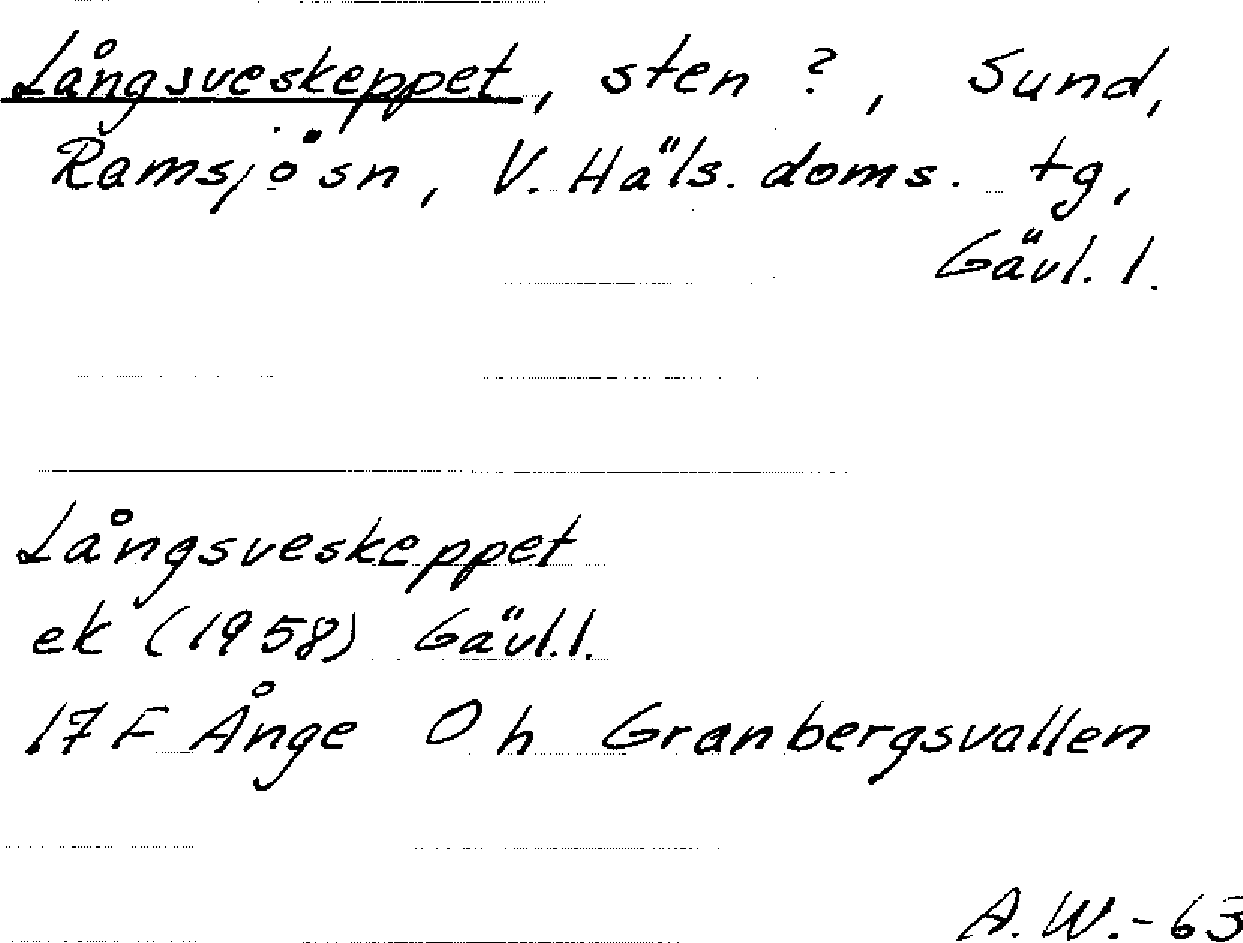 Långsveskeppet, sten ?, Sund,
Ramsjösn, V. Häls. doms. tg,
Gävl. l.
Långsveskeppet
ek (1958) Gävl. l.
17 F Ånge 0 h Granbergsvallen
A. W. - 63